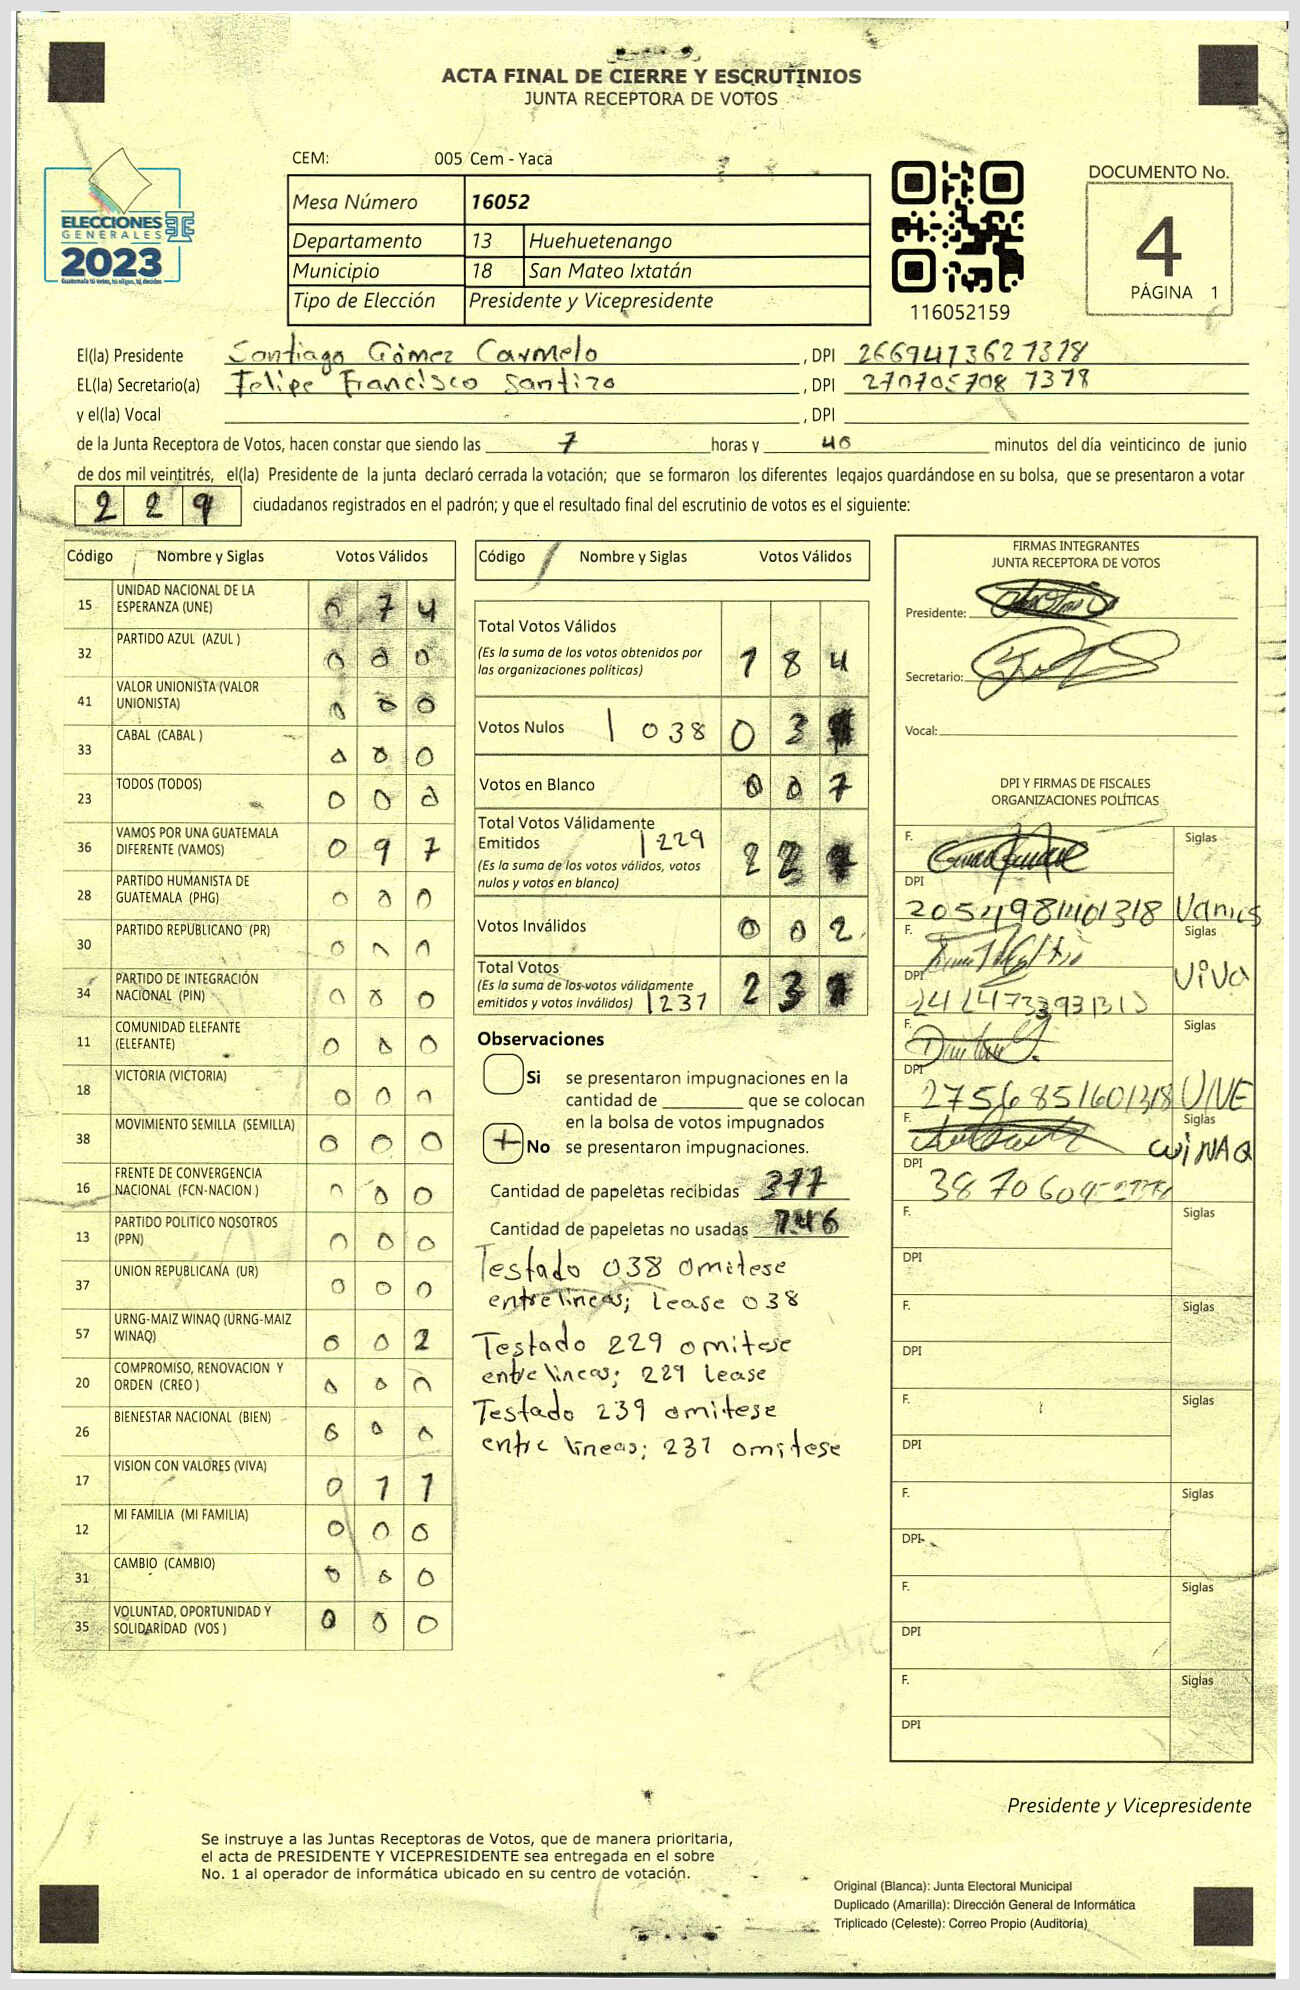 ACTA FINAL DE CIERRE Y ESCRUTINIOS
JUNTA RECEPTORA DE VOTOS
ELECCIONES
GENERALES
2023
Guatemala tú votas, tú eliges, tú decides
CEM: 005 Cem - Yaca
Mesa Número 16052
Departamento 13 Huehuetenango
Municipio 18 San Mateo Ixtatán
Tipo de Elección Presidente y Vicepresidente
116052159
DOCUMENTO No.
4
PÁGINA 1
El(la) Presidente Santiago Gómez Carmelo , DPI 2669473627378
EL(la) Secretario(a) Felipe Francisco Santizo , DPI 2707057087378
y el(la) Vocal , DPI
de la Junta Receptora de Votos, hacen constar que siendo las 7 horas y 40 minutos del día veinticinco de junio
de dos mil veintitrés, el(la) Presidente de la junta declaró cerrada la votación; que se formaron los diferentes legajos guardándose en su bolsa, que se presentaron a votar
229 ciudadanos registrados en el padrón; y que el resultado final del escrutinio de votos es el siguiente:
Código Nombre y Siglas Votos Válidos
15 UNIDAD NACIONAL DE LA ESPERANZA (UNE) 0 7 4
32 PARTIDO AZUL (AZUL ) 0 0 0
41 VALOR UNIONISTA (VALOR UNIONISTA) 0 0 0
33 CABAL (CABAL ) 0 0 0
23 TODOS (TODOS) 0 0 0
36 VAMOS POR UNA GUATEMALA DIFERENTE (VAMOS) 0 9 7
28 PARTIDO HUMANISTA DE GUATEMALA (PHG) 0 0 0
30 PARTIDO REPUBLICANO (PR) 0 0 0
34 PARTIDO DE INTEGRACIÓN NACIONAL (PIN) 0 0 0
11 COMUNIDAD ELEFANTE (ELEFANTE) 0 0 0
18 VICTORIA (VICTORIA) 0 0 0
38 MOVIMIENTO SEMILLA (SEMILLA) 0 0 0
16 FRENTE DE CONVERGENCIA NACIONAL (FCN-NACION ) 0 0 0
13 PARTIDO POLITICO NOSOTROS (PPN) 0 0 0
37 UNION REPUBLICANA (UR) 0 0 0
57 URNG-MAIZ WINAQ (URNG-MAIZ WINAQ) 0 0 2
20 COMPROMISO, RENOVACION Y ORDEN (CREO ) 0 0 0
26 BIENESTAR NACIONAL (BIEN) 0 0 0
17 VISION CON VALORES (VIVA) 0 1 1
12 MI FAMILIA (MI FAMILIA) 0 0 0
31 CAMBIO (CAMBIO) 0 0 0
35 VOLUNTAD, OPORTUNIDAD Y SOLIDARIDAD (VOS ) 0 0 0
Código Nombre y Siglas Votos Válidos
Total Votos Válidos 1 8 4
(Es la suma de los votos obtenidos por
las organizaciones políticas)
Votos Nulos 038 0 3
Votos en Blanco 0 0 7
Total Votos Válidamente
Emitidos 229 2 2
(Es la suma de los votos válidos, votos
nulos y votos en blanco)
Votos Inválidos 0 0 2
Total Votos
(Es la suma de los votos válidamente
emitidos y votos inválidos) 231 2 3
Observaciones
Si se presentaron impugnaciones en la
cantidad de que se colocan
en la bolsa de votos impugnados
+ No se presentaron impugnaciones.
Cantidad de papeletas recibidas 377
Cantidad de papeletas no usadas 146
Testado 038 omitese
entrelineas; Lease 038
Testado 229 omitese
entre lineas; 229 Lease
Testado 239 omitese
entre lineas; 231 omitese
FIRMAS INTEGRANTES
JUNTA RECEPTORA DE VOTOS
Presidente:
Secretario:
Vocal:
DPI Y FIRMAS DE FISCALES
ORGANIZACIONES POLÍTICAS
F. Siglas
DPI Vamos
F. Siglas
DPI VIVA
F. Siglas
DPI 2756851601318 UNE
F. Siglas
DPI WINAQ
F. Siglas
DPI
F. Siglas
DPI
F. Siglas
DPI
F. Siglas
DPI
F. Siglas
DPI
F. Siglas
DPI
Presidente y Vicepresidente
Se instruye a las Juntas Receptoras de Votos, que de manera prioritaria,
el acta de PRESIDENTE Y VICEPRESIDENTE sea entregada en el sobre
No. 1 al operador de informática ubicado en su centro de votación.
Original (Blanca): Junta Electoral Municipal
Duplicado (Amarilla): Dirección General de Informática
Triplicado (Celeste): Correo Propio (Auditoría)